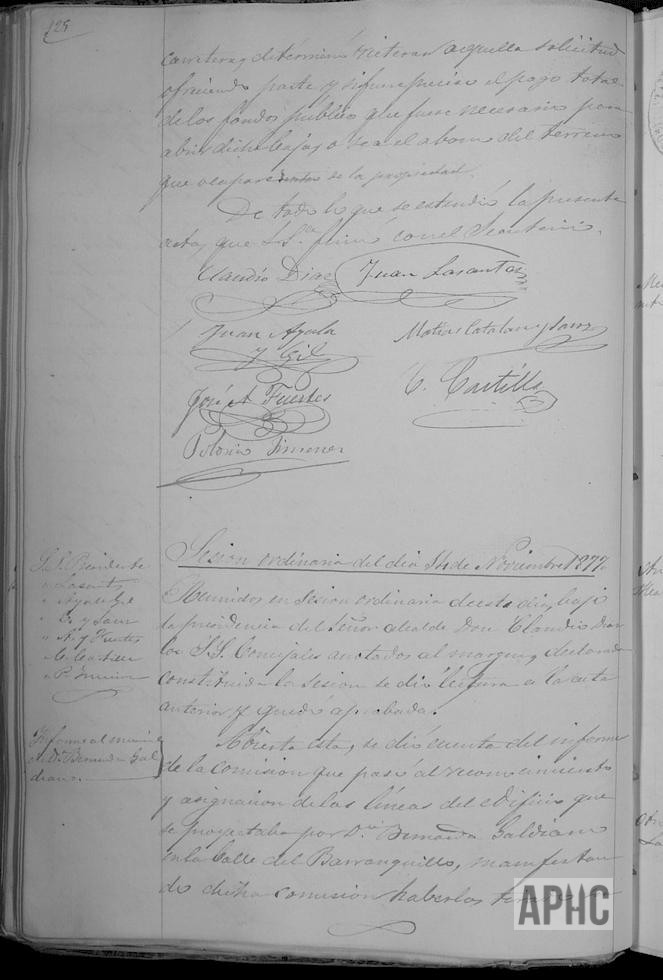 125
carretera, y determinó reiterar aquella solicitud
ofreciendo parte y si fuese preciso el pago total
de los fondos publicos que fuere necesario para
abrir dicha caja, o sea el abono del terreno
que ocupare de la propiedad.
De todo lo que se estendió la presente
acta, que S.S.ª firmó con el Secretario.
Claudio Diaz Juan Lasantas
Juan Ayala
y Gil
Matias Catalan y Sanz
José A. Fuertes
C. Castilla
Polonio Jimenez
Sesion ordinaria del dia 14 de Noviembre 1877.
S.S. Presidente
" Lasantas
" Ayala Gil
" C. y Sanz
" A. y Fuertes
" C. Castilla
" P. Jimenez
Reunidos en sesion ordinaria de este dia, bajo
la presidencia del Señor alcalde Don Claudio Diaz
los S.S. Concejales anotados al margen, y declarada
constituida la sesion se dió lectura a la acta
anterior y quedó aprobada.
Informe al
de D.ª Bernarda Gal
diano.
Abierta esta, se dió cuenta del informe
de la comision que pasó al reconocimiento
y asignacion de las líneas del edificio que
se proyectaba por D.ª Bernarda Galdiano
en la Calle del Barranquillo, manifestan
do dicha comision haberlas
APHC